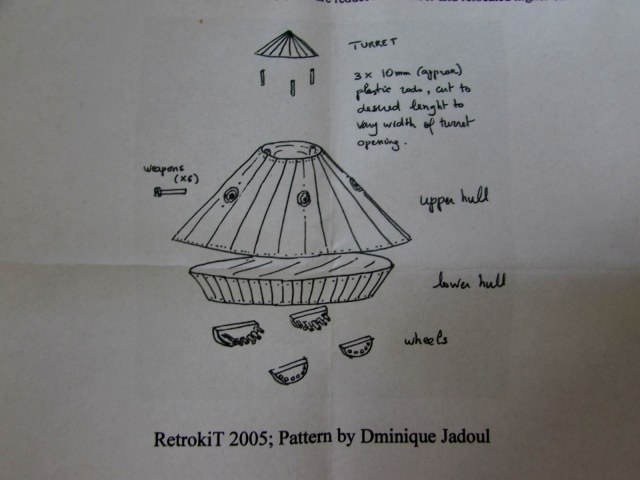 TURRET
3 x 10mm (approx)
plastic rods, cut to
desired lenght to
vary width of turret
opening.
weapons
(x6)
upper hull
lower hull
wheels
RetrokiT 2005; Pattern by Dminique Jadoul